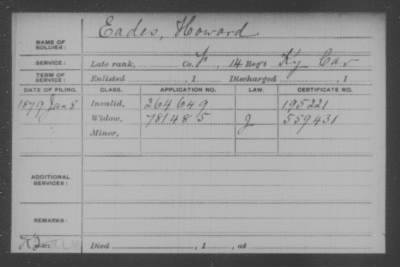 Eades, Howard
NAME OF SOLDIER:
SERVICE: Late rank, Co. F, 14 Reg't Ky Cav
TERM OF SERVICE: Enlisted , 1 Discharged , 1
DATE OF FILING. CLASS. APPLICATION NO. LAW. CERTIFICATE NO.
1879 Jan 8 Invalid, 264649 195221
Widow, 781485 J 559431
Minor,
ADDITIONAL SERVICES:
REMARKS:
Died , 1 , at